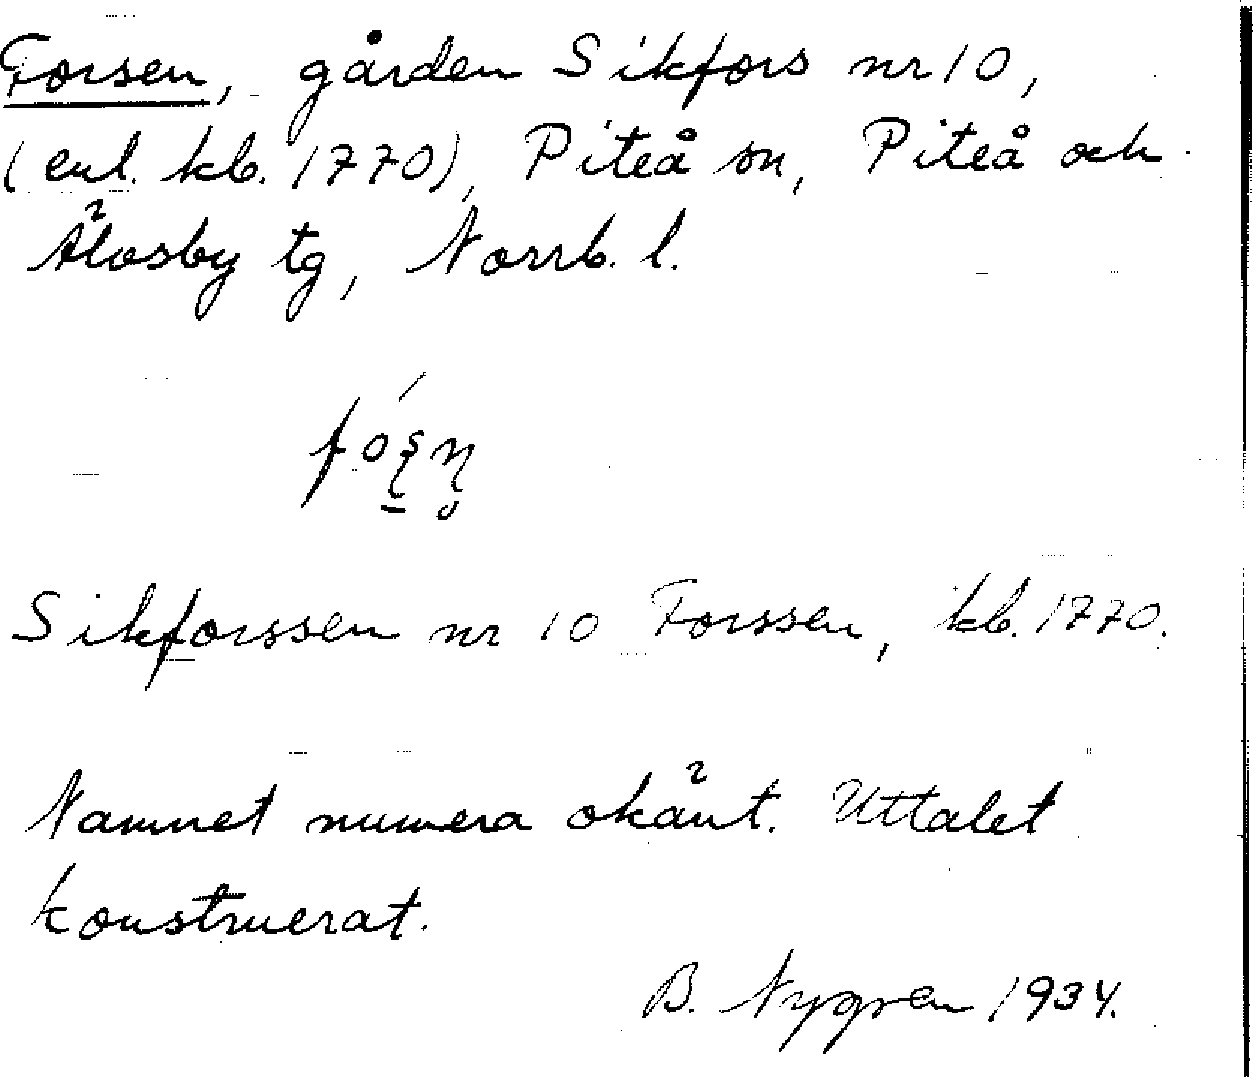 Forsen, gården Sikfors nr 10,
(enl. kb. 1770), Piteå sn, Piteå och
Älvsby tg, Norrb. l.
fó̱ʂn̥
Sikforssen nr 10 Forssen, kb. 1770.
Namnet numera okänt. Uttalet
konstruerat.
B. Nygren 1934.